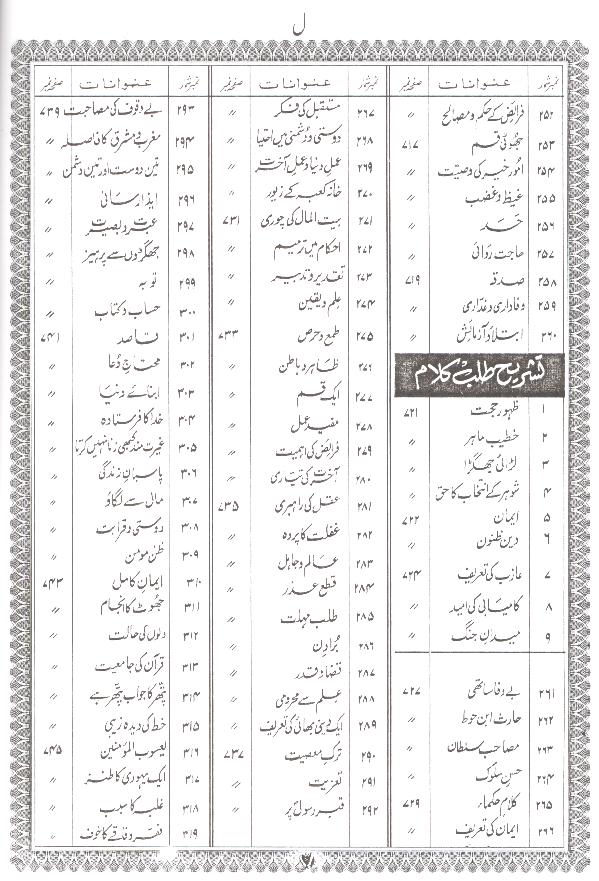 ل
نمبر شمار عنوانات صفحہ نمبر
۲۵۲ فرائض کے حکم و مصالح 〃
۲۵۳ جھوٹی قسم ۷۱۷
۲۵۴ امور خیر کی وصیت 〃
۲۵۵ غیظ و غضب 〃
۲۵۶ حسد 〃
۲۵۷ حاجت روائی 〃
۲۵۸ صدقہ ۷۱۹
۲۵۹ وفاداری و غداری 〃
۲۶۰ ابتلاء و آزمائش 〃
تشریح طلب کلام
۱ ظہور حجت ۷۲۱
۲ خطیب ماہر 〃
۳ لڑائی جھگڑا 〃
۴ شوہر کے انتخاب کا حق 〃
۵ ایمان ۷۲۲
۶ دین ظنون 〃
۷ عازب کی تعریف ۷۲۴
۸ کامیابی کی امید 〃
۹ میدان جنگ 〃
۲۶۱ بے وفا ساتھی ۷۲۷
۲۶۲ حارث ابن حوط 〃
۲۶۳ مصاحب سلطان 〃
۲۶۴ حسن سلوک 〃
۲۶۵ کلام حکماء ۷۲۹
۲۶۶ ایمان کی تعریف 〃
نمبر شمار عنوانات صفحہ نمبر
۲۶۷ مستقبل کی فکر 〃
۲۶۸ دوستی و دشمنی میں احتیاط 〃
۲۶۹ عمل دنیا و عمل آخرت 〃
۲۷۰ خانہ کعبہ کے زیور 〃
۲۷۱ بیت المال کی چوری ۷۳۱
۲۷۲ احکام میں ترمیم 〃
۲۷۳ تقدیر و تدبیر 〃
۲۷۴ علم و یقین 〃
۲۷۵ طمع و حرص ۷۳۳
۲۷۶ ظاہر و باطن 〃
۲۷۷ ایک قسم 〃
۲۷۸ مفید عمل 〃
۲۷۹ فرائض کی اہمیت 〃
۲۸۰ آخرت کی تیاری 〃
۲۸۱ عقل کی راہبری ۷۳۵
۲۸۲ غفلت کا پردہ 〃
۲۸۳ عالم و جاہل 〃
۲۸۴ قطع عذر 〃
۲۸۵ طلب مہلت 〃
۲۸۶ بُرا دن 〃
۲۸۷ قضا و قدر 〃
۲۸۸ علم سے محرومی 〃
۲۸۹ ایک دینی بھائی کی تعریف 〃
۲۹۰ ترک معصیت ۷۳۷
۲۹۱ تعزیت 〃
۲۹۲ قبر رسولؐ پر 〃
نمبر شمار عنوانات صفحہ نمبر
۲۹۳ بے وقوف کی مصاحبت ۷۳۹
۲۹۴ مغرب و مشرق کا فاصلہ 〃
۲۹۵ تین دوست اور تین دشمن 〃
۲۹۶ ایذا رسانی 〃
۲۹۷ عبرت و بصیرت 〃
۲۹۸ جھگڑوں سے پرہیز 〃
۲۹۹ توبہ 〃
۳۰۰ حساب و کتاب 〃
۳۰۱ قاصد ۷۴۱
۳۰۲ محتاج دُعا 〃
۳۰۳ ابنائے دنیا 〃
۳۰۴ خدا کا فرستادہ 〃
۳۰۵ غیرت مند کبھی زنا نہیں کرتا 〃
۳۰۶ پاسبان زندگی 〃
۳۰۷ مال سے لگاؤ 〃
۳۰۸ دوستی و قرابت 〃
۳۰۹ ظن مومن 〃
۳۱۰ ایمان کامل ۷۴۳
۳۱۱ جھوٹ کا انجام 〃
۳۱۲ دلوں کی حالت 〃
۳۱۳ قرآن کی جامعیت 〃
۳۱۴ پتھر کا جواب پتھر ہے 〃
۳۱۵ خط کی دیدہ زیبی 〃
۳۱۶ یعسوب المؤمنین ۷۴۵
۳۱۷ ایک یہودی کا طنز 〃
۳۱۸ غلبہ کا سبب 〃
۳۱۹ فقر و فاقے کا خوف 〃